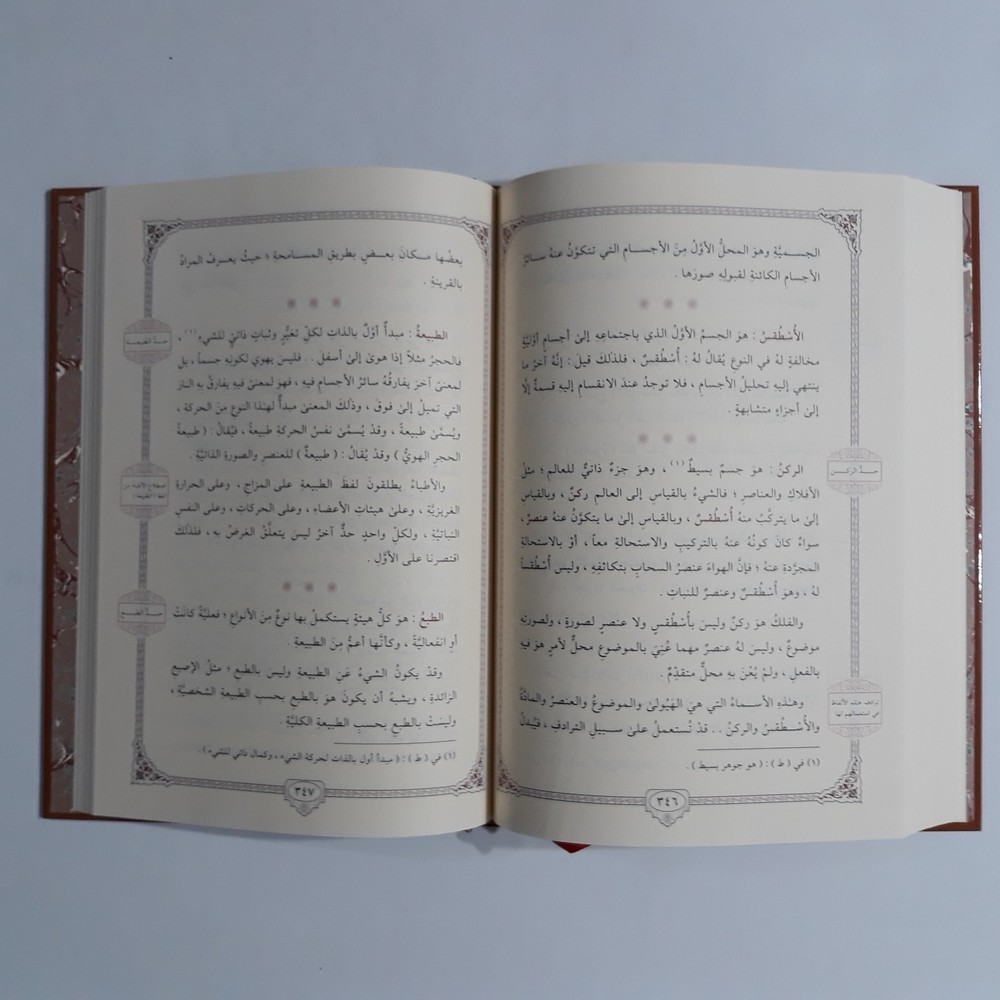 الجسميَّةِ وهوَ المحلُّ الأوَّلُ مِنَ الأجسامِ التي تتكوَّنُ عنهُ سائرُ
الأجسامِ الكائنةِ لقبولِهِ صورَها .
الأُسْطُقسُ : هوَ الجسمُ الأوَّلُ الذي باجتماعِهِ إلىٰ أجسامٍ أوَّليَّةٍ
مخالفةٍ لهُ في النوعِ يُقالُ لهُ : أُسْطُقسٌ ، فلذٰلكَ قيلَ : إنَّهُ آخرُ ما
ينتهي إليهِ تحليلُ الأجسامِ ، فلا توجدُ عندَ الانقسامِ إليهِ قسمةٌ إلَّا
إلىٰ أجزاءٍ متشابهةٍ .
حدّ الركن
الركنُ : هوَ جسمٌ بسيطٌ (١) ، وهوَ جزءٌ ذاتيٌّ للعالمِ ؛ مثلُ
الأفلاكِ والعناصرِ ؛ فالشيءُ بالقياسِ إلى العالمِ ركنٌ ، وبالقياسِ
إلىٰ ما يتركَّبُ منهُ أُسْطُقسٌ ، وبالقياسِ إلىٰ ما يتكوَّنُ عنهُ عنصرٌ ،
سواءٌ كانَ كونُهُ عنهُ بالتركيبِ والاستحالةِ معاً ، أوْ بالاستحالةِ
المجرَّدةِ عنهُ ؛ فإنَّ الهواءَ عنصرُ السحابِ بتكاثفِهِ ، وليس أُسْطُقساً
لهُ ، وهوَ أُسْطُقسٌ وعنصرٌ للنباتِ .
والفلكُ هوَ ركنٌ وليسَ بأُسْطُقسٍ ولا عنصرٍ لصورةٍ ، ولصورتِهِ
موضوعٌ ، وليسَ لهُ عنصرٌ مهما عُنِيَ بالموضوعِ محلٌّ لأمرٍ هوَ فيهِ
بالفعلِ ، ولمْ يُعْنَ بهِ محلٌّ متقدِّمٌ .
ترادف هذه الألفاظ
في استعمالهم لها
وهٰذهِ الأسماءُ التي هيَ الهَيُولىٰ والموضوعُ والعنصرُ والمادَّةُ
والأُسْطُقسُ والركنُ . . قدْ تُستعملُ علىٰ سبيلِ الترادفِ ، فيُبدلُ
(١) في ( ط ) : ( هو جوهر بسيط ) .
٣٤٦
بعضُها مكانَ بعضٍ بطريقِ المسامحةِ ؛ حيثُ يعرفُ المرادُ
بالقرينةِ .
حدّ الطبيعة
الطبيعةُ : مبدأٌ أوَّلُ بالذاتِ لكلِّ تغيُّرٍ وثباتٍ ذاتيٍّ للشيءِ (١) ،
فالحجرُ مثلاً إذا هوىٰ إلىٰ أسفلَ . . فليسَ يهوي لكونِهِ جسماً ، بل
لمعنىً آخرَ يفارقُهُ سائرُ الأجسامِ فيهِ ، فهوَ لمعنىً فيهِ يفارقُ بهِ النارَ
التي تميلُ إلىٰ فوقُ ، وذٰلكَ المعنىٰ مبدأٌ لهٰذا النوعِ منَ الحركةِ ،
ويُسمَّىٰ طبيعةً ، وقدْ يُسمَّىٰ نفسُ الحركةِ طبيعةً ، فيُقالُ : ( طبيعةُ
الحجرِ الهويُّ ) وقدْ يُقالُ : ( طبيعةٌ ) للعنصرِ والصورةِ الذاتيَّةِ .
والأطباءُ يطلقونَ لفظَ الطبيعةِ على المزاجِ ، وعلى الحرارةِ
الغريزيَّةِ ، وعلىٰ هيئاتِ الأعضاءِ ، وعلى الحركاتِ ، وعلى النفسِ
النباتيَّةِ ، ولكلِّ واحدٍ حدٌّ آخرُ ليسَ يتعلَّقُ الغرضُ بهِ ، فلذٰلكَ
اقتصرنا على الأوَّلِ .
حدّ الطبع
الطبعُ : هوَ كلُّ هيئةٍ يستكملُ بها نوعٌ مِنَ الأنواعِ ؛ فعليَّةً كانتْ
أوِ انفعاليَّةً ، وكأنَّها أعمُّ مِنَ الطبيعةِ .
وقدْ يكونُ الشيءُ عَنِ الطبيعةِ وليسَ بالطبعِ ؛ مثلُ الإصبعِ
الزائدةِ ، ويشبهُ أن يكونَ هوَ بالطبعِ بحسبِ الطبيعةِ الشخصيَّةِ ،
وليستْ بالطبعِ بحسبِ الطبيعةِ الكليَّةِ .
(١) في ( ط ) : ( مبدأ أول بالذات لحركة الشيء ، وكمال ذاتي للشيء ) .
٣٤٧